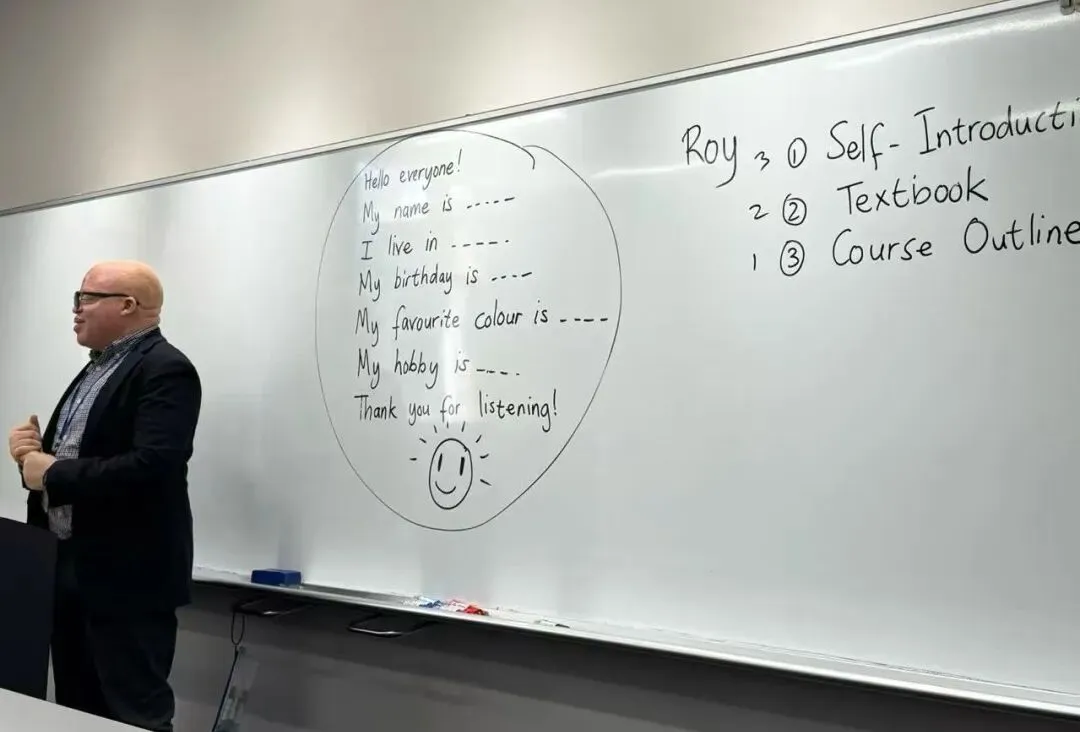 Hello everyone!
My name is -----
I live in -----.
My birthday is ----
My favourite colour is ----
My hobby is ----.
Thank you for listening!
Roy 3 ① Self-Introducti
2 ② Textbook
1 ③ Course Outline